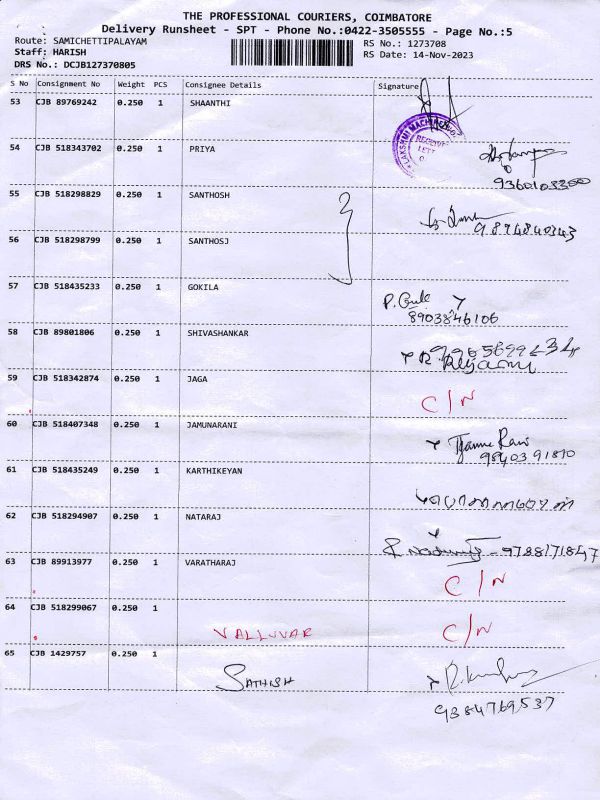 THE PROFESSIONAL COURIERS, COIMBATORE
Delivery Runsheet - SPT - Phone No.:0422-3505555 - Page No.:5
Route: SAMICHETTIPALAYAM RS No.: 1273708
Staff: HARISH RS Date: 14-Nov-2023
DRS No.: DCJB127370805
S No Consignment No Weight PCS Consignee Details Signature
53 CJB 89769242 0.250 1 SHAANTHI
LAKSHMI
54 CJB 518343702 0.250 1 PRIYA
9360103300
55 CJB 518298829 0.250 1 SANTHOSH
9874840343
56 CJB 518298799 0.250 1 SANTHOSJ
57 CJB 518435233 0.250 1 GOKILA
8903846106
58 CJB 89801806 0.250 1 SHIVASHANKAR
59 CJB 518342874 0.250 1 JAGA
C/N
60 CJB 518407348 0.250 1 JAMUNARANI
9840391810
61 CJB 518435249 0.250 1 KARTHIKEYAN
62 CJB 518294907 0.250 1 NATARAJ
9788171847
63 CJB 89913977 0.250 1 VARATHARAJ
C/N
64 CJB 518299067 0.250 1
VALLUVAR C/N
65 CJB 1429757 0.250 1
SATHISH
9384769537